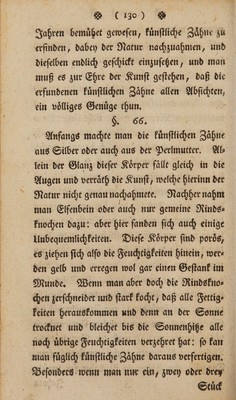 ( 130 )
Jahren bemühet gewesen, künstliche Zähne zu
erfinden, dabey der Natur nachzuahmen, und
dieselben endlich geschickt einzusehen, und man
muß es zur Ehre der Kunst gestehen, daß die
erfundenen künstlichen Zähne allen Absichten,
ein völliges Genüge thun.
§. 66.
Anfangs machte man die künstlichen Zähne
aus Silber oder auch aus der Perlmutter. Al-
lein der Glanz dieser Körper fällt gleich in die
Augen und verräth die Kunst, welche hierinn der
Natur nicht genau nachahmete. Nachher nahm
man Elfenbein oder auch nur gemeine Rinds-
knochen dazu: aber hier fanden sich auch einige
Unbequemlichkeiten. Diese Körper sind porös,
es ziehen sich also die Feuchtigkeiten hinein, wer-
den gelb und erregen wol gar einen Gestank im
Munde. Wenn man aber doch die Rindskno-
chen zerschneidet und stark kocht, daß alle Fettig-
keiten herauskommen und denn an der Sonne
trocknet und bleichet bis die Sonnenhitze alle
noch übrige Feuchtigkeiten verzehret hat: so kan
man füglich künstliche Zähne daraus verfertigen.
Besonders wenn man nur ein, zwey oder drey
Stück